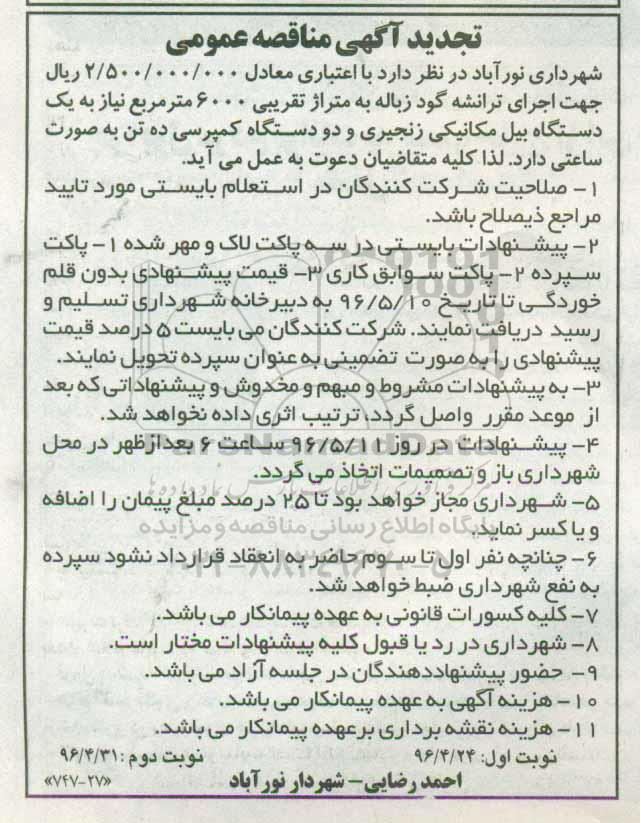 تجدید آگهی مناقصه عمومی
شهرداری نورآباد در نظر دارد با اعتباری معادل ۲/۵۰۰/۰۰۰/۰۰۰ ریال
جهت اجرای ترانشه گود زباله به متراژ تقریبی ۶۰۰۰ مترمربع نیاز به یک
دستگاه بیل مکانیکی زنجیری و دو دستگاه کمپرسی ده تن به صورت
ساعتی دارد. لذا کلیه متقاضیان دعوت به عمل می آید.
۱- صلاحیت شرکت کنندگان در استعلام بایستی مورد تایید
مراجع ذیصلاح باشد.
۲- پیشنهادات بایستی در سه پاکت لاک و مهر شده ۱- پاکت
سپرده ۲- پاکت سوابق کاری ۳- قیمت پیشنهادی بدون قلم
خوردگی تا تاریخ ۹۶/۵/۱۰ به دبیرخانه شهرداری تسلیم و
رسید دریافت نمایند. شرکت کنندگان می بایست ۵ درصد قیمت
پیشنهادی را به صورت تضمینی به عنوان سپرده تحویل نمایند.
۳- به پیشنهادات مشروط و مبهم و مخدوش و پیشنهاداتی که بعد
از موعد مقرر واصل گردد، ترتیب اثری داده نخواهد شد.
۴- پیشنهادات در روز ۹۶/۵/۱۱ ساعت ۶ بعدازظهر در محل
شهرداری باز و تصمیمات اتخاذ می گردد
۵- شهرداری مجاز خواهد بود تا ۲۵ درصد مبلغ پیمان را اضافه
و یا کسر نماید.
۶- چنانچه نفر اول تا سوم حاضر به انعقاد قرارداد نشود سپرده
به نفع شهرداری ضبط خواهد شد.
۷- کلیه کسورات قانونی به عهده پیمانکار می باشد.
۸- شهرداری در رد یا قبول کلیه پیشنهادات مختار است
۹- حضور پیشنهاددهندگان در جلسه آزاد می باشد.
۱۰- هزینه آگهی به عهده پیمانکار می باشد.
۱۱- هزینه نقشه برداری برعهده پیمانکار می باشد.
نوبت اول: ۹۶/۴/۲۴ نوبت دوم: ۹۶/۴/۳۱
احمد رضایی- شهردار نورآباد «۷۴۷-۲۷»
ParsNamadData
پایگاه اطلاع رسانی مناقصه و مزایده